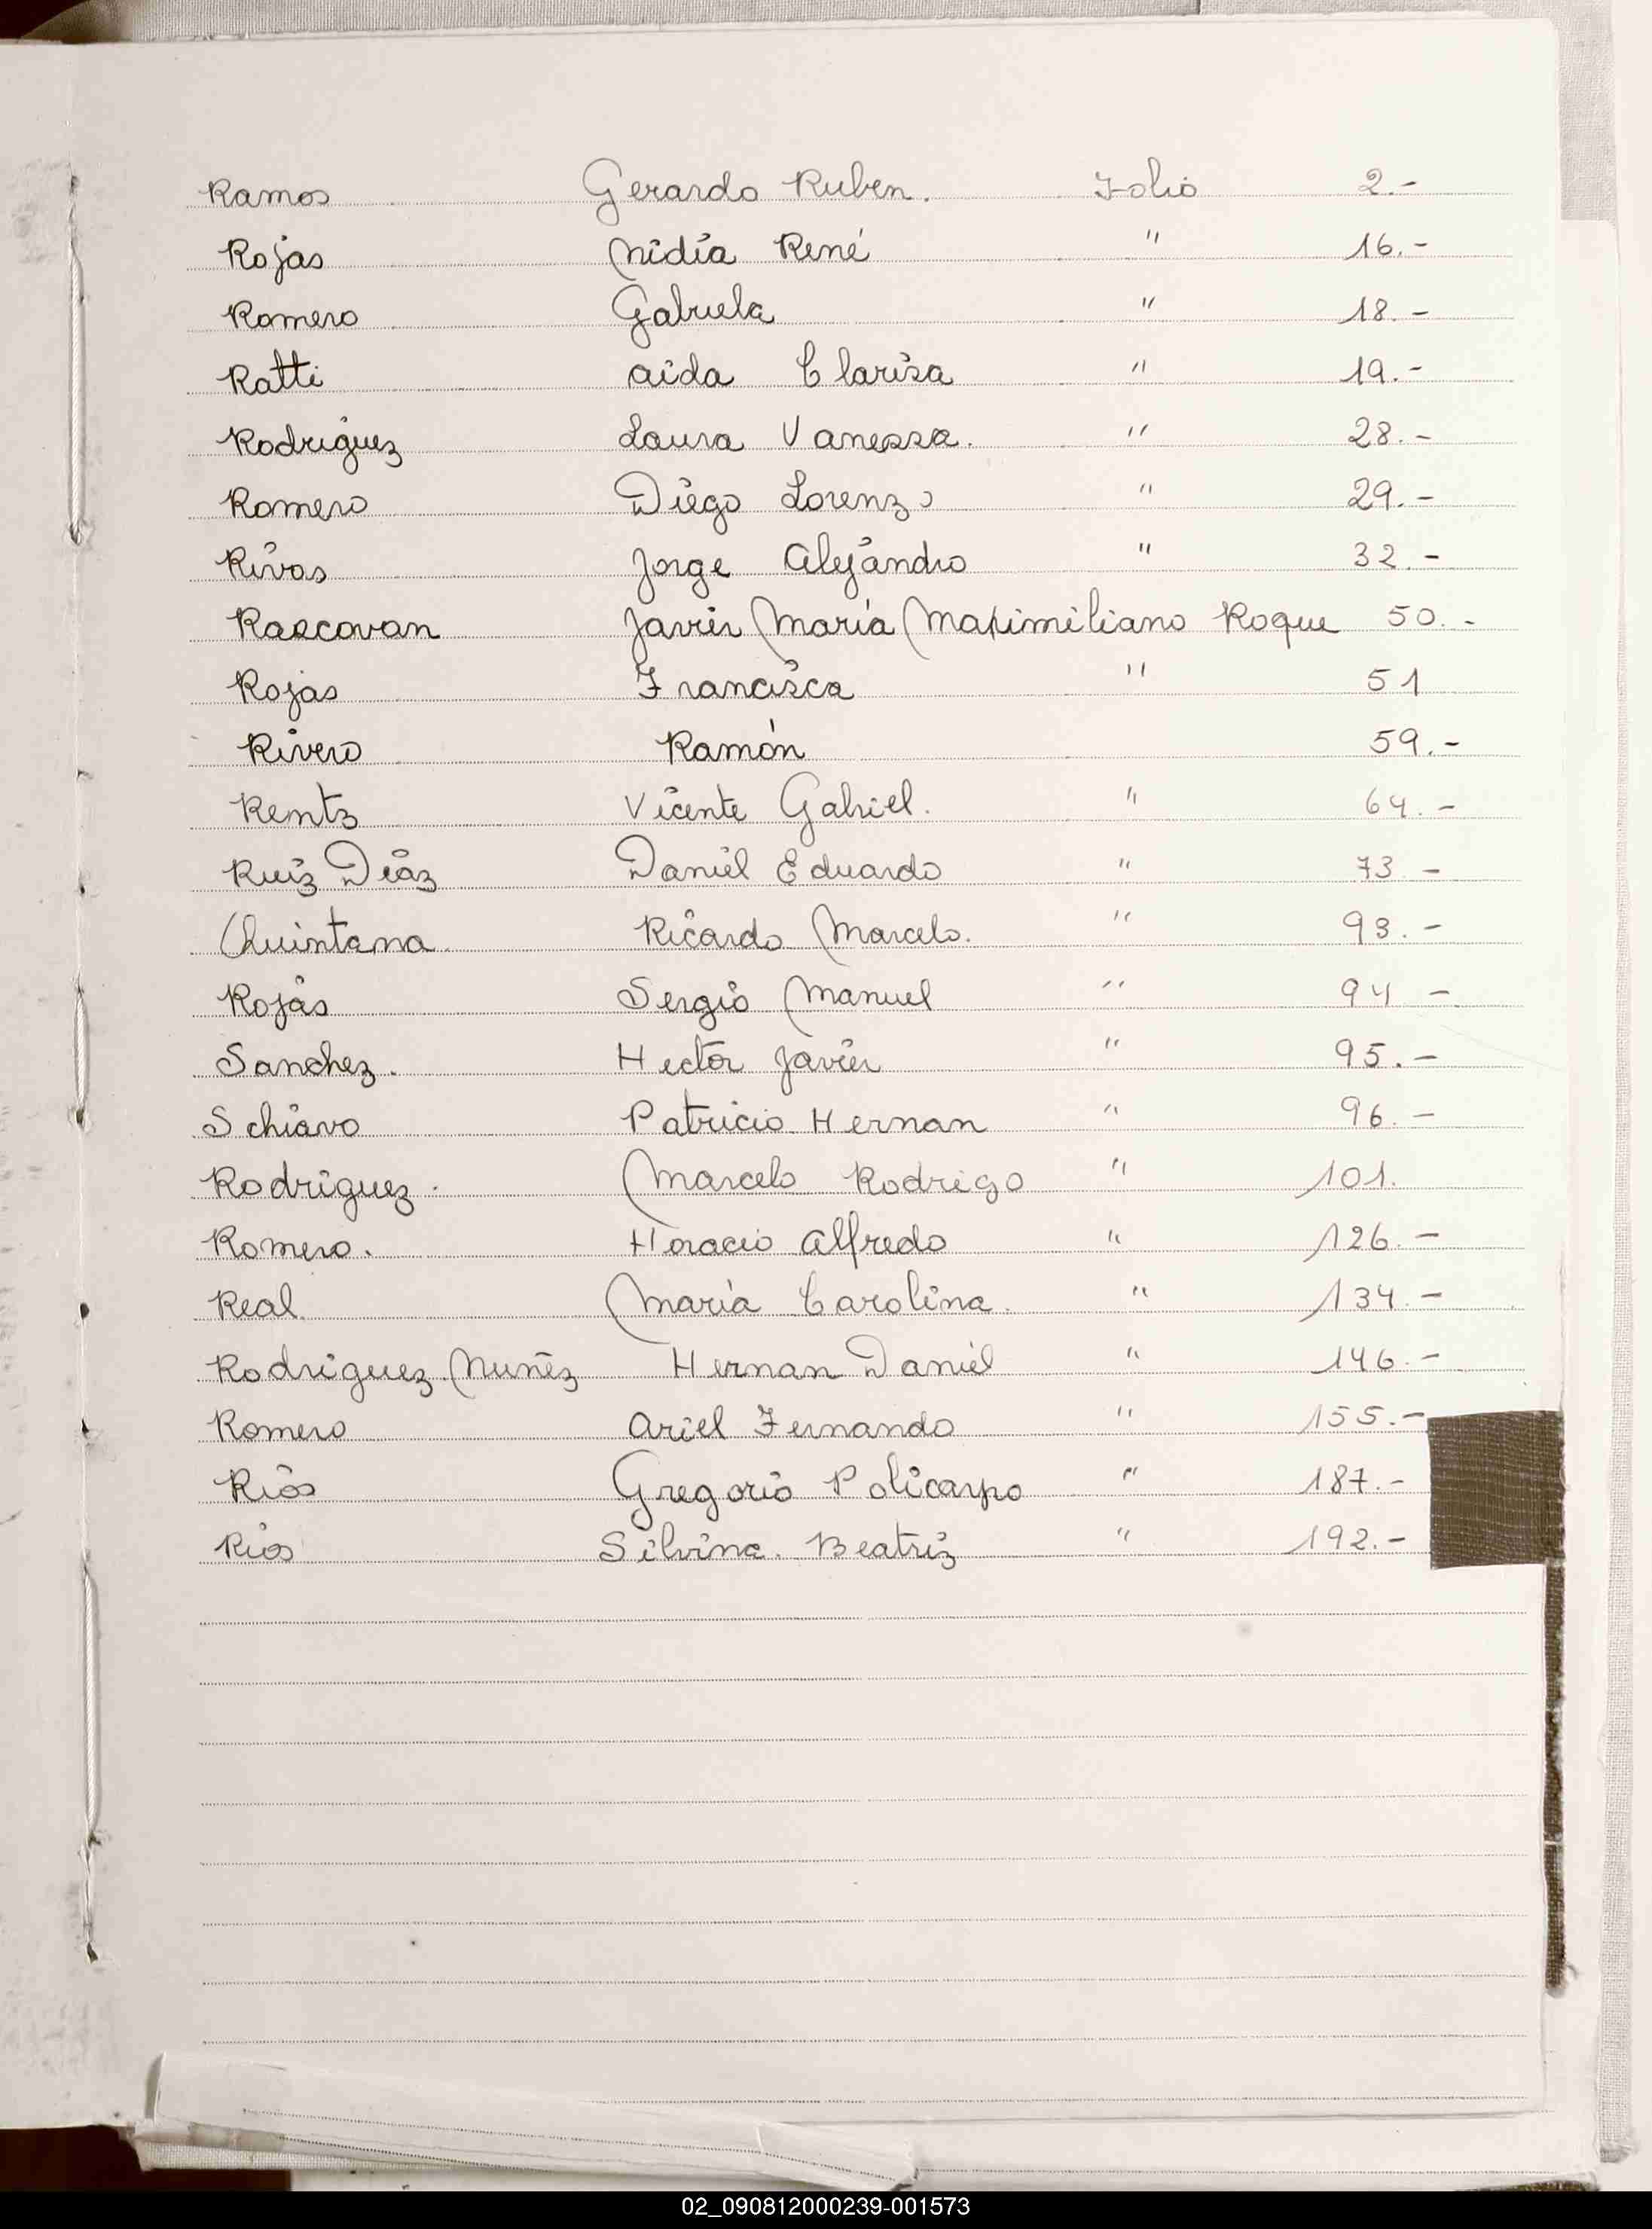 Ramos Gerardo Ruben. Folio 2.-
Rojas Nidia René " 16.-
Romero Gabriela " 18.-
Ratti Aida Clarisa " 19.-
Rodriguez Laura Vanessa. " 28.-
Romero Diego Lorenzo " 29.-
Rivas Jorge Alejandro " 32.-
Rascovan Javier María Maximiliano Roque 50.-
Rojas Francisca " 51
Rivero Ramón 59.-
Rentz Vicente Gabriel. " 64.-
Ruiz Diaz Daniel Eduardo " 73 -
Quintana Ricardo Marcelo. " 93.-
Rojas Sergio Manuel " 94 -
Sanchez. Hector Javier " 95.-
Schiavo Patricio Hernan " 96.-
Rodriguez. Marcelo Rodrigo " 101.
Romero. Horacio Alfredo " 126.-
Real María Carolina. " 134.-
Rodriguez Nuñez Hernan Daniel " 146.-
Romero Ariel Fernando " 155.-
Rios Gregorio Policarpo " 187.-
Rios Silvina. Beatriz " 192.-
02_090812000239-001573